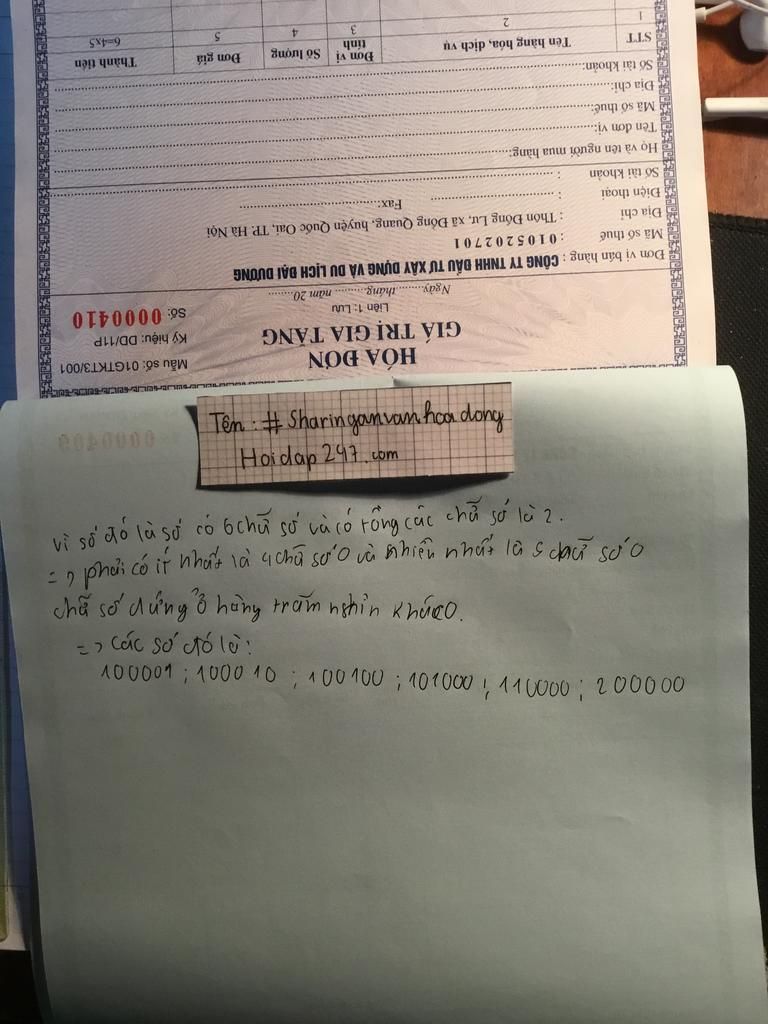 HÓA ĐƠN
GIÁ TRỊ GIA TĂNG
Liên 1: Lưu
Ngày........tháng.........năm 20........
Mẫu số: 01GTKT3/001
Ký hiệu: DD/11P
Số: 0000410
Đơn vị bán hàng : CÔNG TY TNHH ĐẦU TƯ XÂY DỰNG VÀ DU LỊCH ĐẠI DƯƠNG
Mã số thuế : 0105202701
Địa chỉ : Thôn Đồng Lư, xã Đồng Quang, huyện Quốc Oai, TP. Hà Nội
Điện thoại : Fax:
Số tài khoản :
Họ và tên người mua hàng:
Tên đơn vị:
Mã số thuế:
Địa chỉ:
Số tài khoản:
STT Tên hàng, hóa, dịch vụ Đơn vị tính Số lượng Đơn giá Thành tiền
1 2 3 4 5 6=4x5
0000409
Tên: #Sharinganvanhoadong
Hoidap247.com
Vì số đó là số có 6 chữ số và có tổng các chữ số là 2.
=> phải có ít nhất là 4 chữ số 0 và nhiều nhất là 5 chữ số 0
chữ số đứng ở hàng trăm nghìn khác 0.
=> Các số đó là:
100001 ; 100010 ; 100100 ; 101000 ; 110000 ; 200000